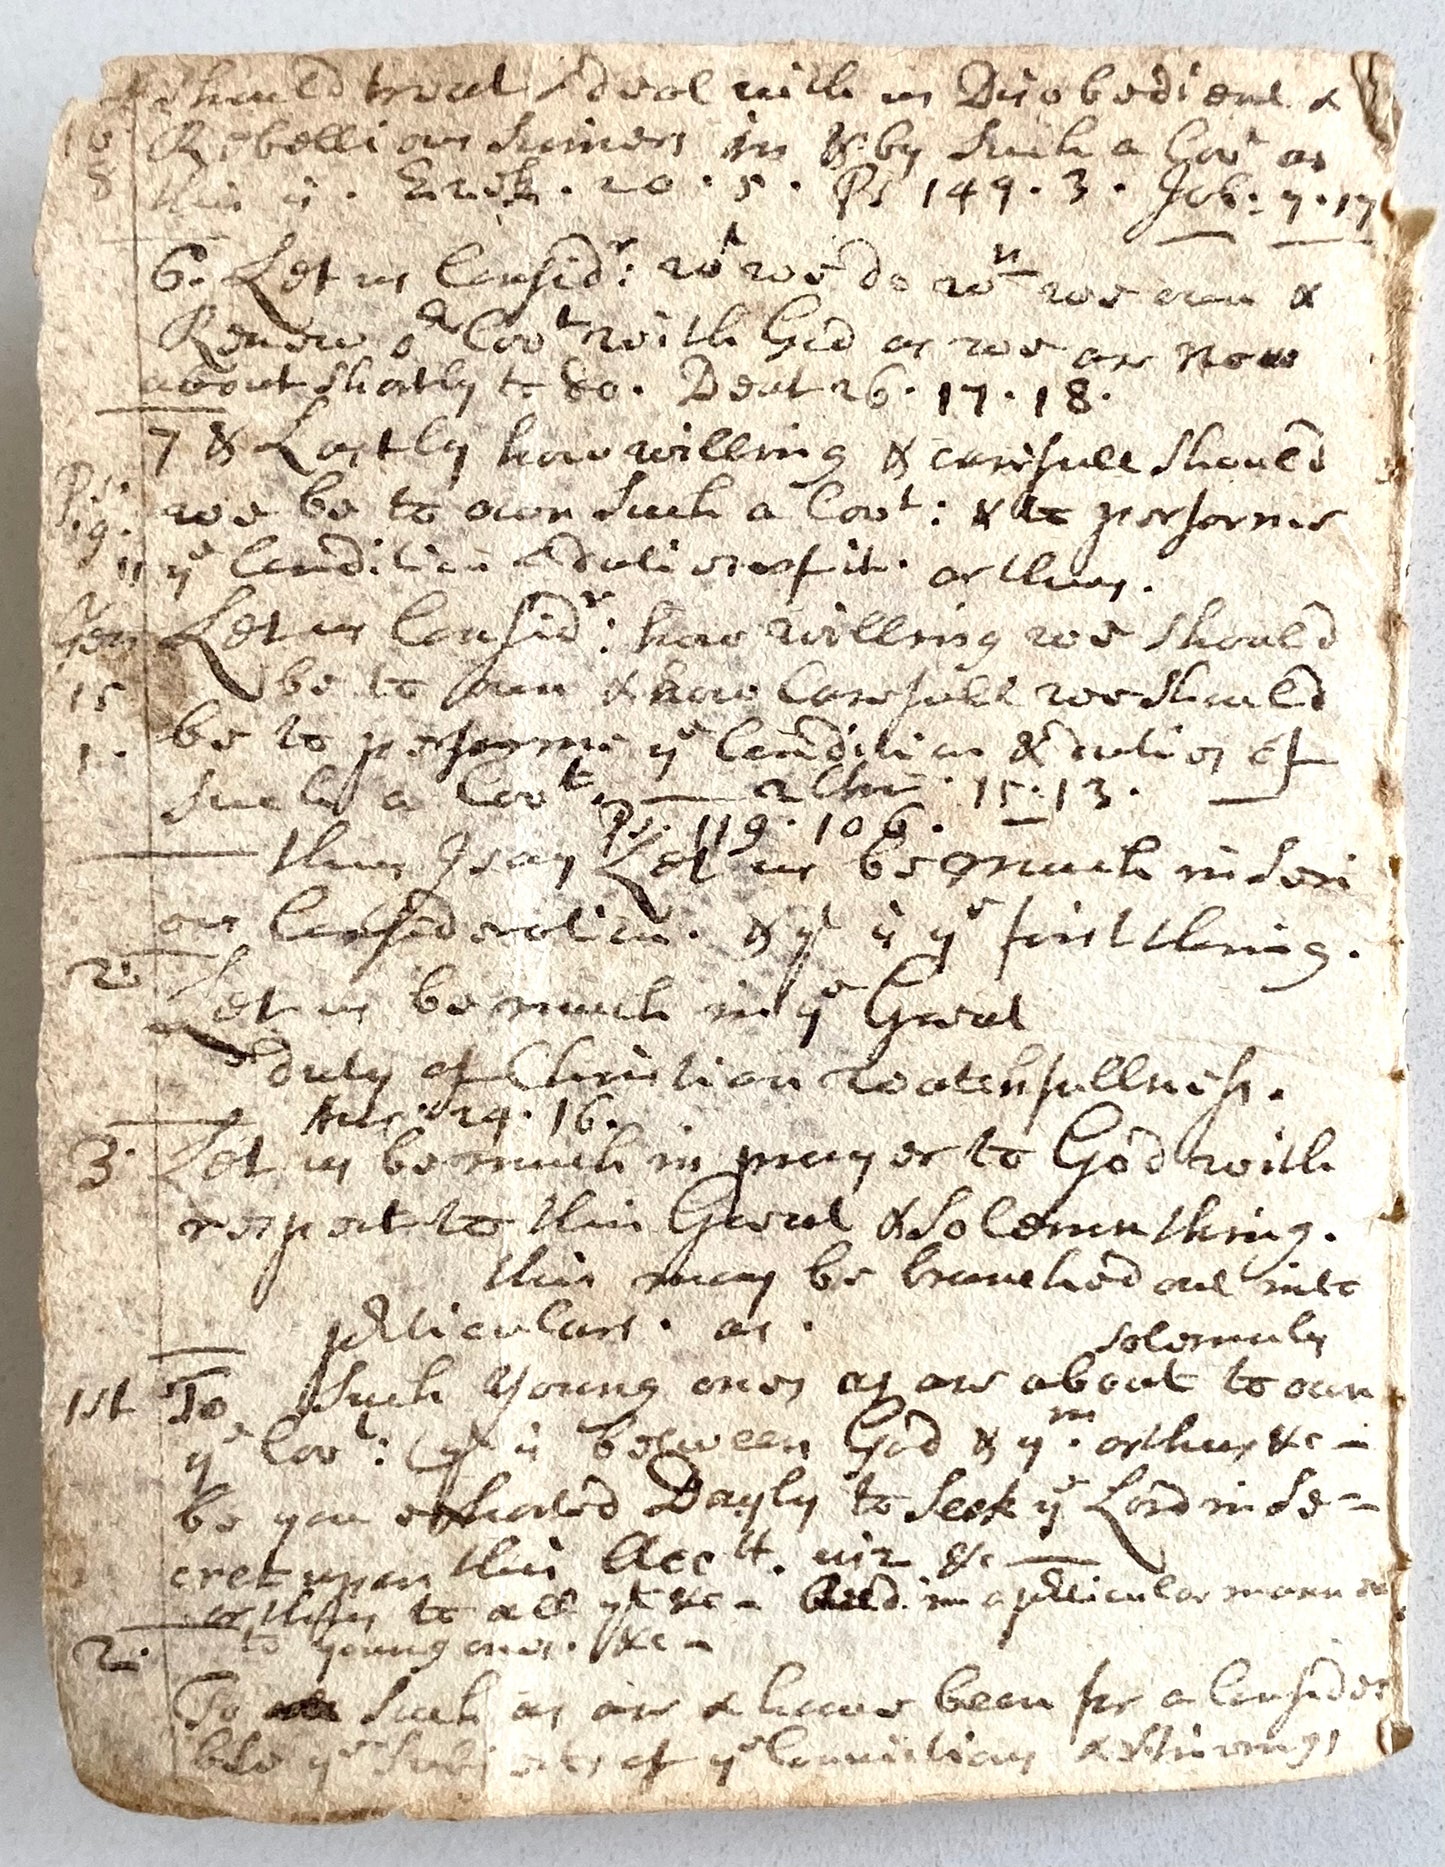 should treat & deal with us Disobedient &
16 Rebellious sinners in & by such a Covt as
8 this is. Ezek. 20. 5. Ps 149. 3. Job: 7. 17
6. Let us Considr: wt we do wn we own &
Renew or Covt with God as we are now
about shortly to do. Deut 26. 17. 18.
7 & Lastly how willing & carefull should
Ps: we be to own such a Covt: & to performe
19. 11 ye Condition & duties of it. as thus.
Gen Let us Considr: how willing we should
15 be to own & how Carefull we should
1. be to performe ye Condition & duties of
such a Covt. — 2 Chr. 15. 13. —
Ps. 119. 106.
thus I say Let us be much in Seri
ous Consideration. & yt is ye first thing.
2. Let us be much in ye Great
duty of Christian watchfullness.
Acts 24. 16.
3. Let us be much in prayer to God with
respect to this Great & Solemn thing.
this may be branched out into
pticulars. as.
solemnly
1st To such young ones as are about to own
ye Covt: (yt is between God & ym. as thus &c –
be you exhorted Dayly to seek ye Lord in Se=
cret upon this Acctt. viz &c —
as thus to all yt &c – in a pticular mann
to young ones. &c –
2. To such as are & have been for a Consider
ble ye Subjects of ye Convictions & Strivings